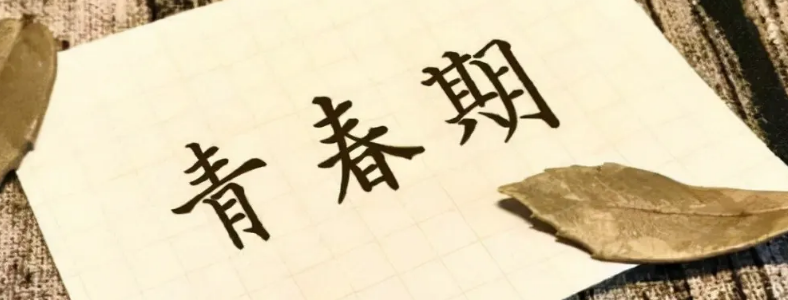 青春期